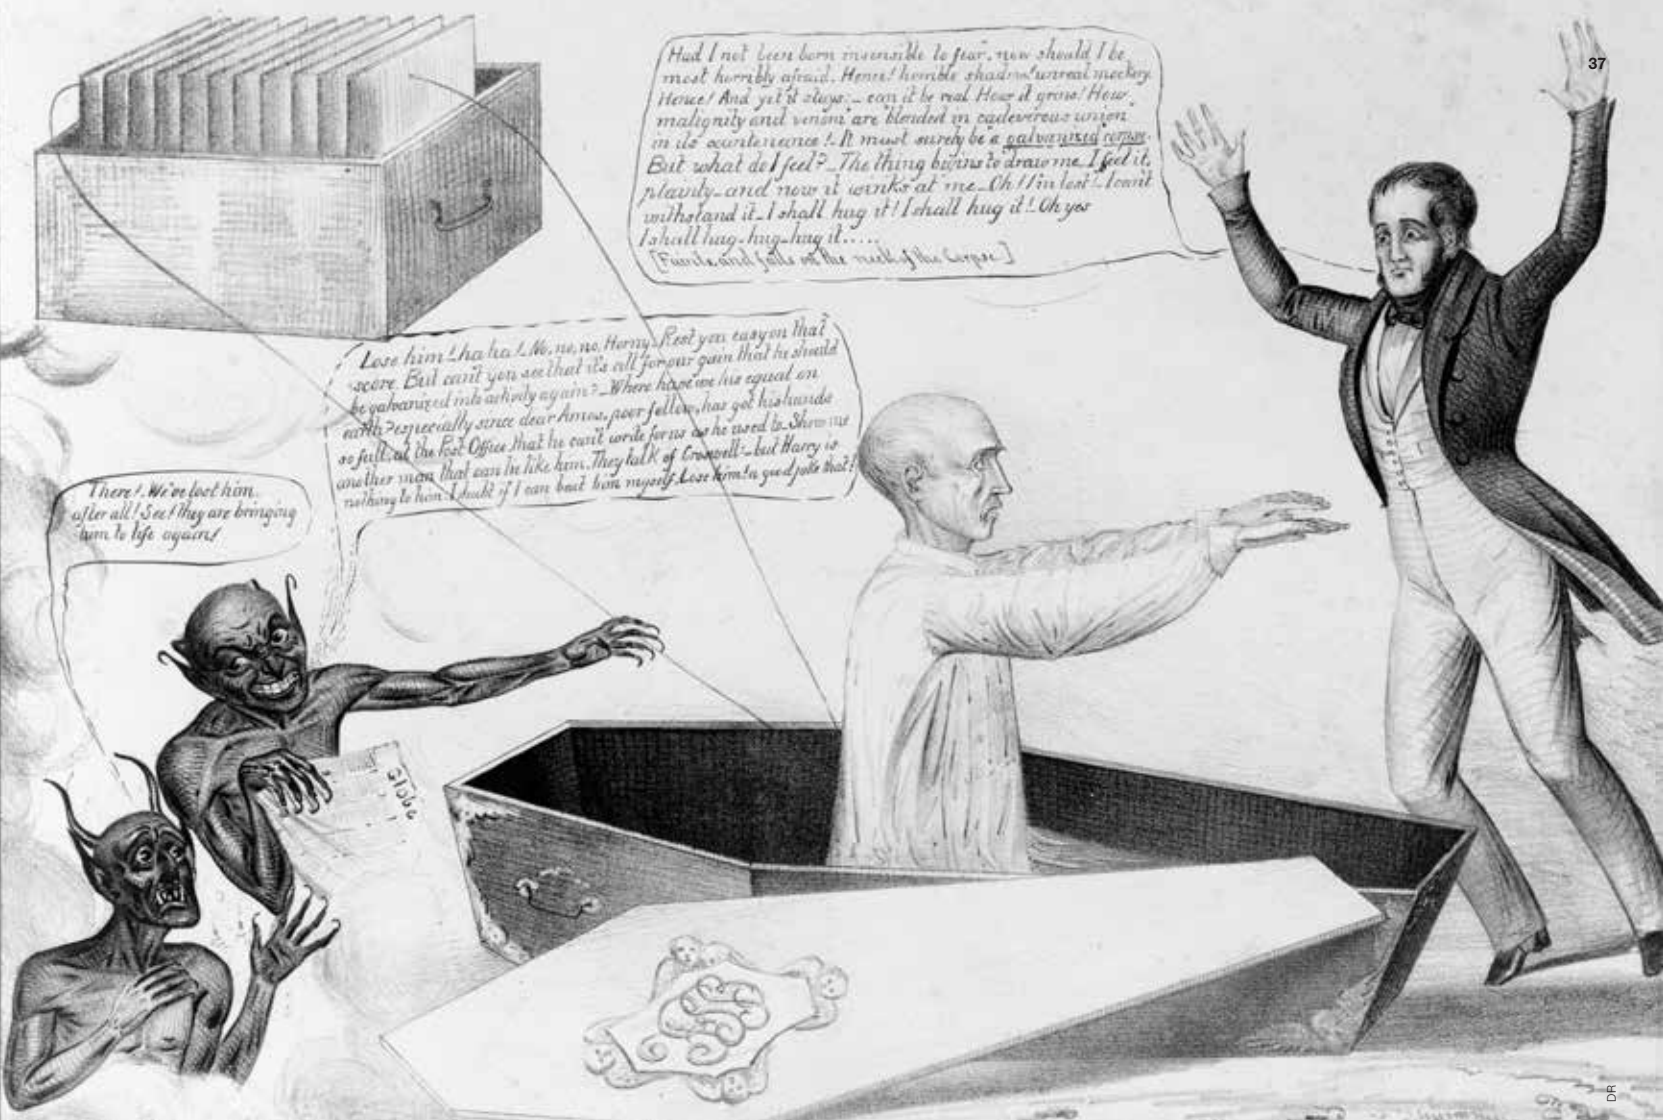 37
Had I not been born insensible to fear, now should I be
most horribly afraid. Hence! horrible shadow! unreal mockery
Hence! And yet it stays:_ can it be real How it grows! How
malignity and venom are blended in cadeverous union
in its countenance!_ It must surely be a galvanized corpse.
But what do I feel?_ The thing begins to draw me_ I feel it
plainly_ and now it winks at me_ Oh! I'm lost!_ I can't
withstand it_ I shall hug it! I shall hug it!_ Oh yes
I shall hug-hug-hug it.....
[Faints and falls on the neck of the Corpse.]
Lose him!_ ha ha!_ No, no, no, Horny_ Rest you easy on that
score. But can't you see that it's all for our gain that he should
be galvanized into activity again?_ Where have we his equal on
earth? especially since dear Amos, poor fellow, has got his hands
so full at the Post Office that he can't write for us as he used to_ Show me
another man that can lie like him. They talk of Croswell:_ but Harry is
nothing to him. I doubt if I can beat him myself. Lose him! a good joke that!
There! We've lost him
after all! See! they are bringing
him to life again!
Globe
DR